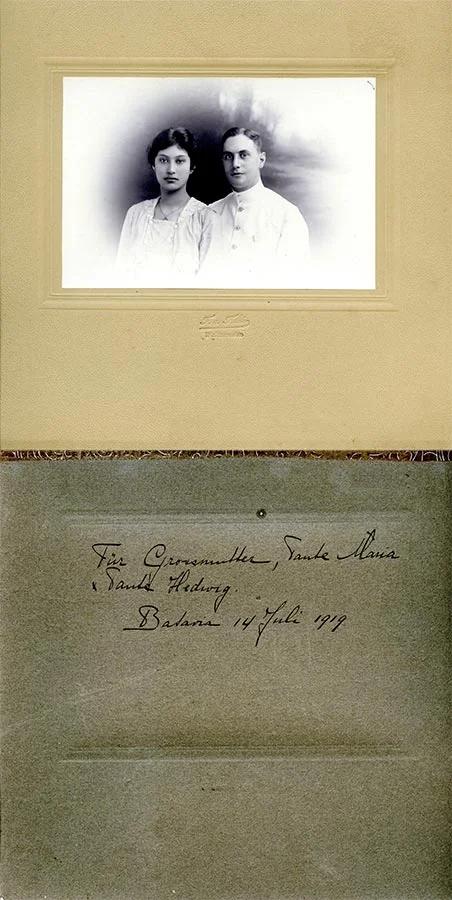 Für Grossmutter, Tante Maria
& Tante Hedwig.
Batavia 14 Juli 1919